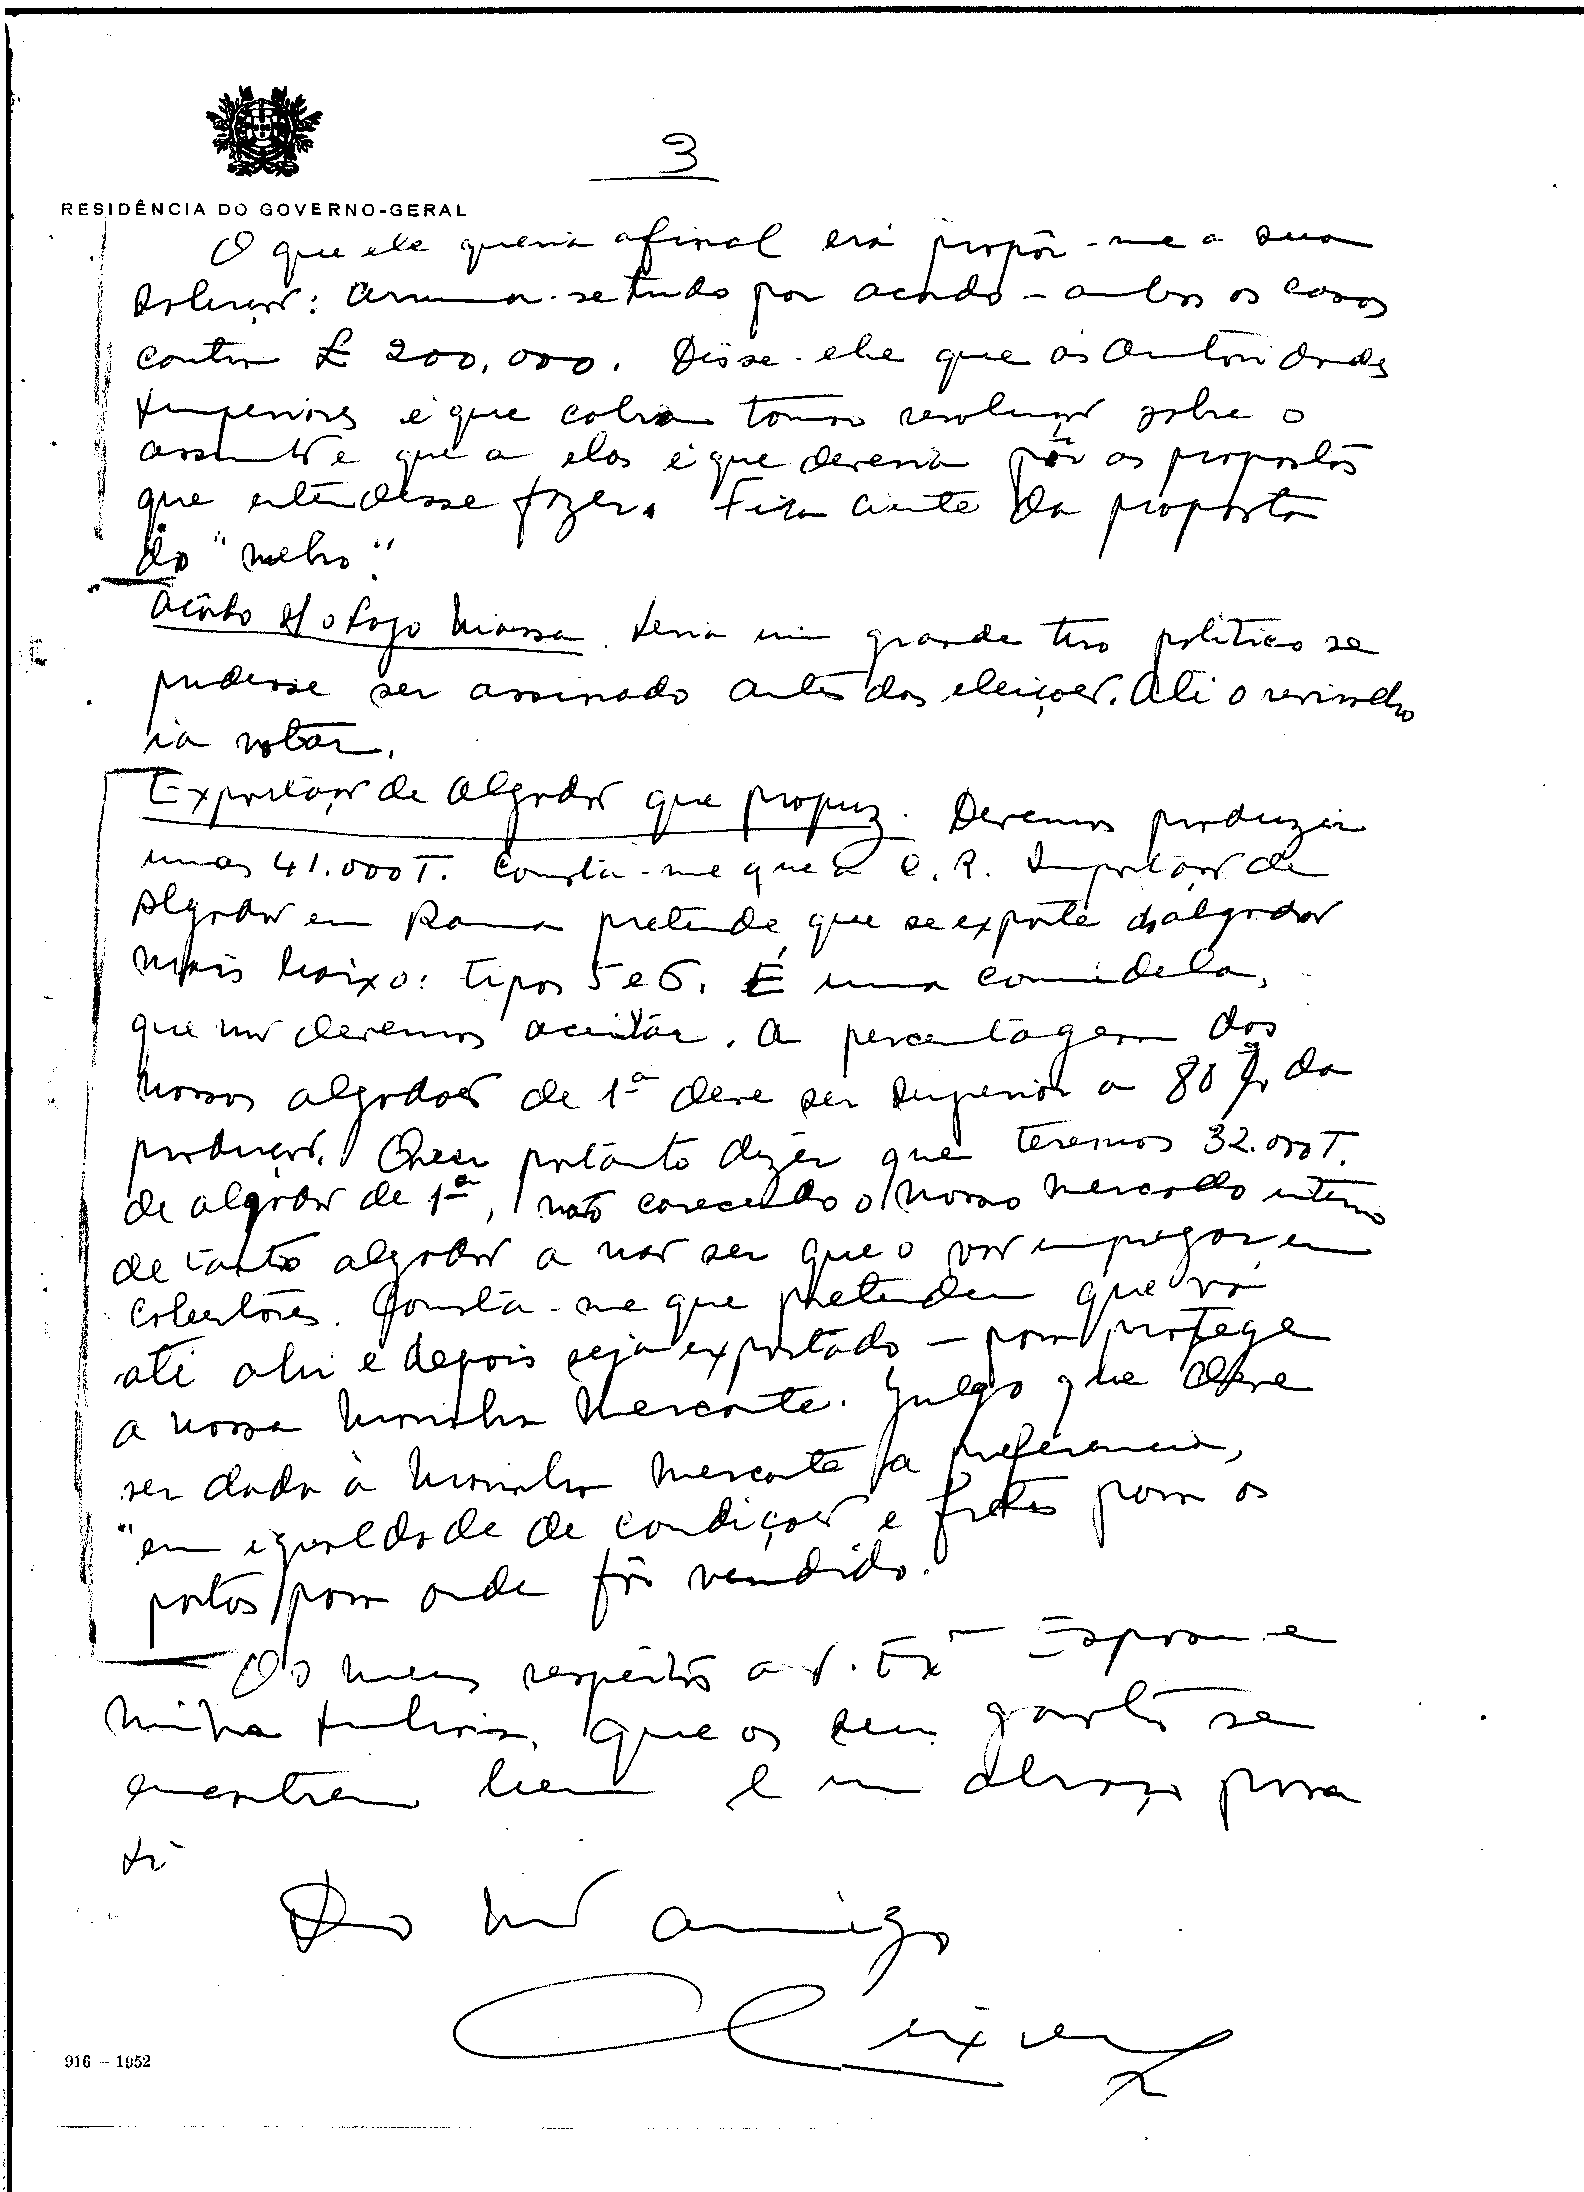 3
RESIDÊNCIA DO GOVERNO-GERAL
O que ele queria afinal era propôr-me a sua
solução: arruma-se tudo por acordo - ambos os casos
contra £ 200,000. Disse-lhe que às Autoridades
Superiores é que cabia tomar resolução sobre o
assunto e que a elas é que deveria pôr as propostas
que entendesse fazer. Fica ciente da proposta
do "melro".
Acôrdo s/ o Lago Niassa. Seria um grande tiro político se
pudesse ser assinado antes das eleições. Até o
ia votar.
Exportação de Algodão que propuz. Devemos produzir
umas 41.000 T. Consta-me que a C. R. Importação de
Algodão em Rama pretende que se exporte o algodão
mais baixo: tipos 5 e 6. É uma comidela,
que não devemos aceitar. A percentagem dos
nossos algodões de 1ª deve ser superior a 80 % da
produção. Quer portanto dizer que teremos 32.000 T.
de algodão de 1ª, não carecendo o nosso mercado interno
de tanto algodão a não ser que o vão empregar em
cobertores. Consta-me que pretendem que vá
até ahi e depois seja exportado - para proteger
a nossa Marinha Mercante. Julgo que deve
ser dada à Marinha Mercante a preferencia,
"em igualdade de condições e fretes para os
portos para onde fôr vendido."
Os meus respeitos a V. Exª Esposa e
minha Senhora, que os seus se
encontrem bem e um abraço para
si
Do Mº amigo
916 - 1952